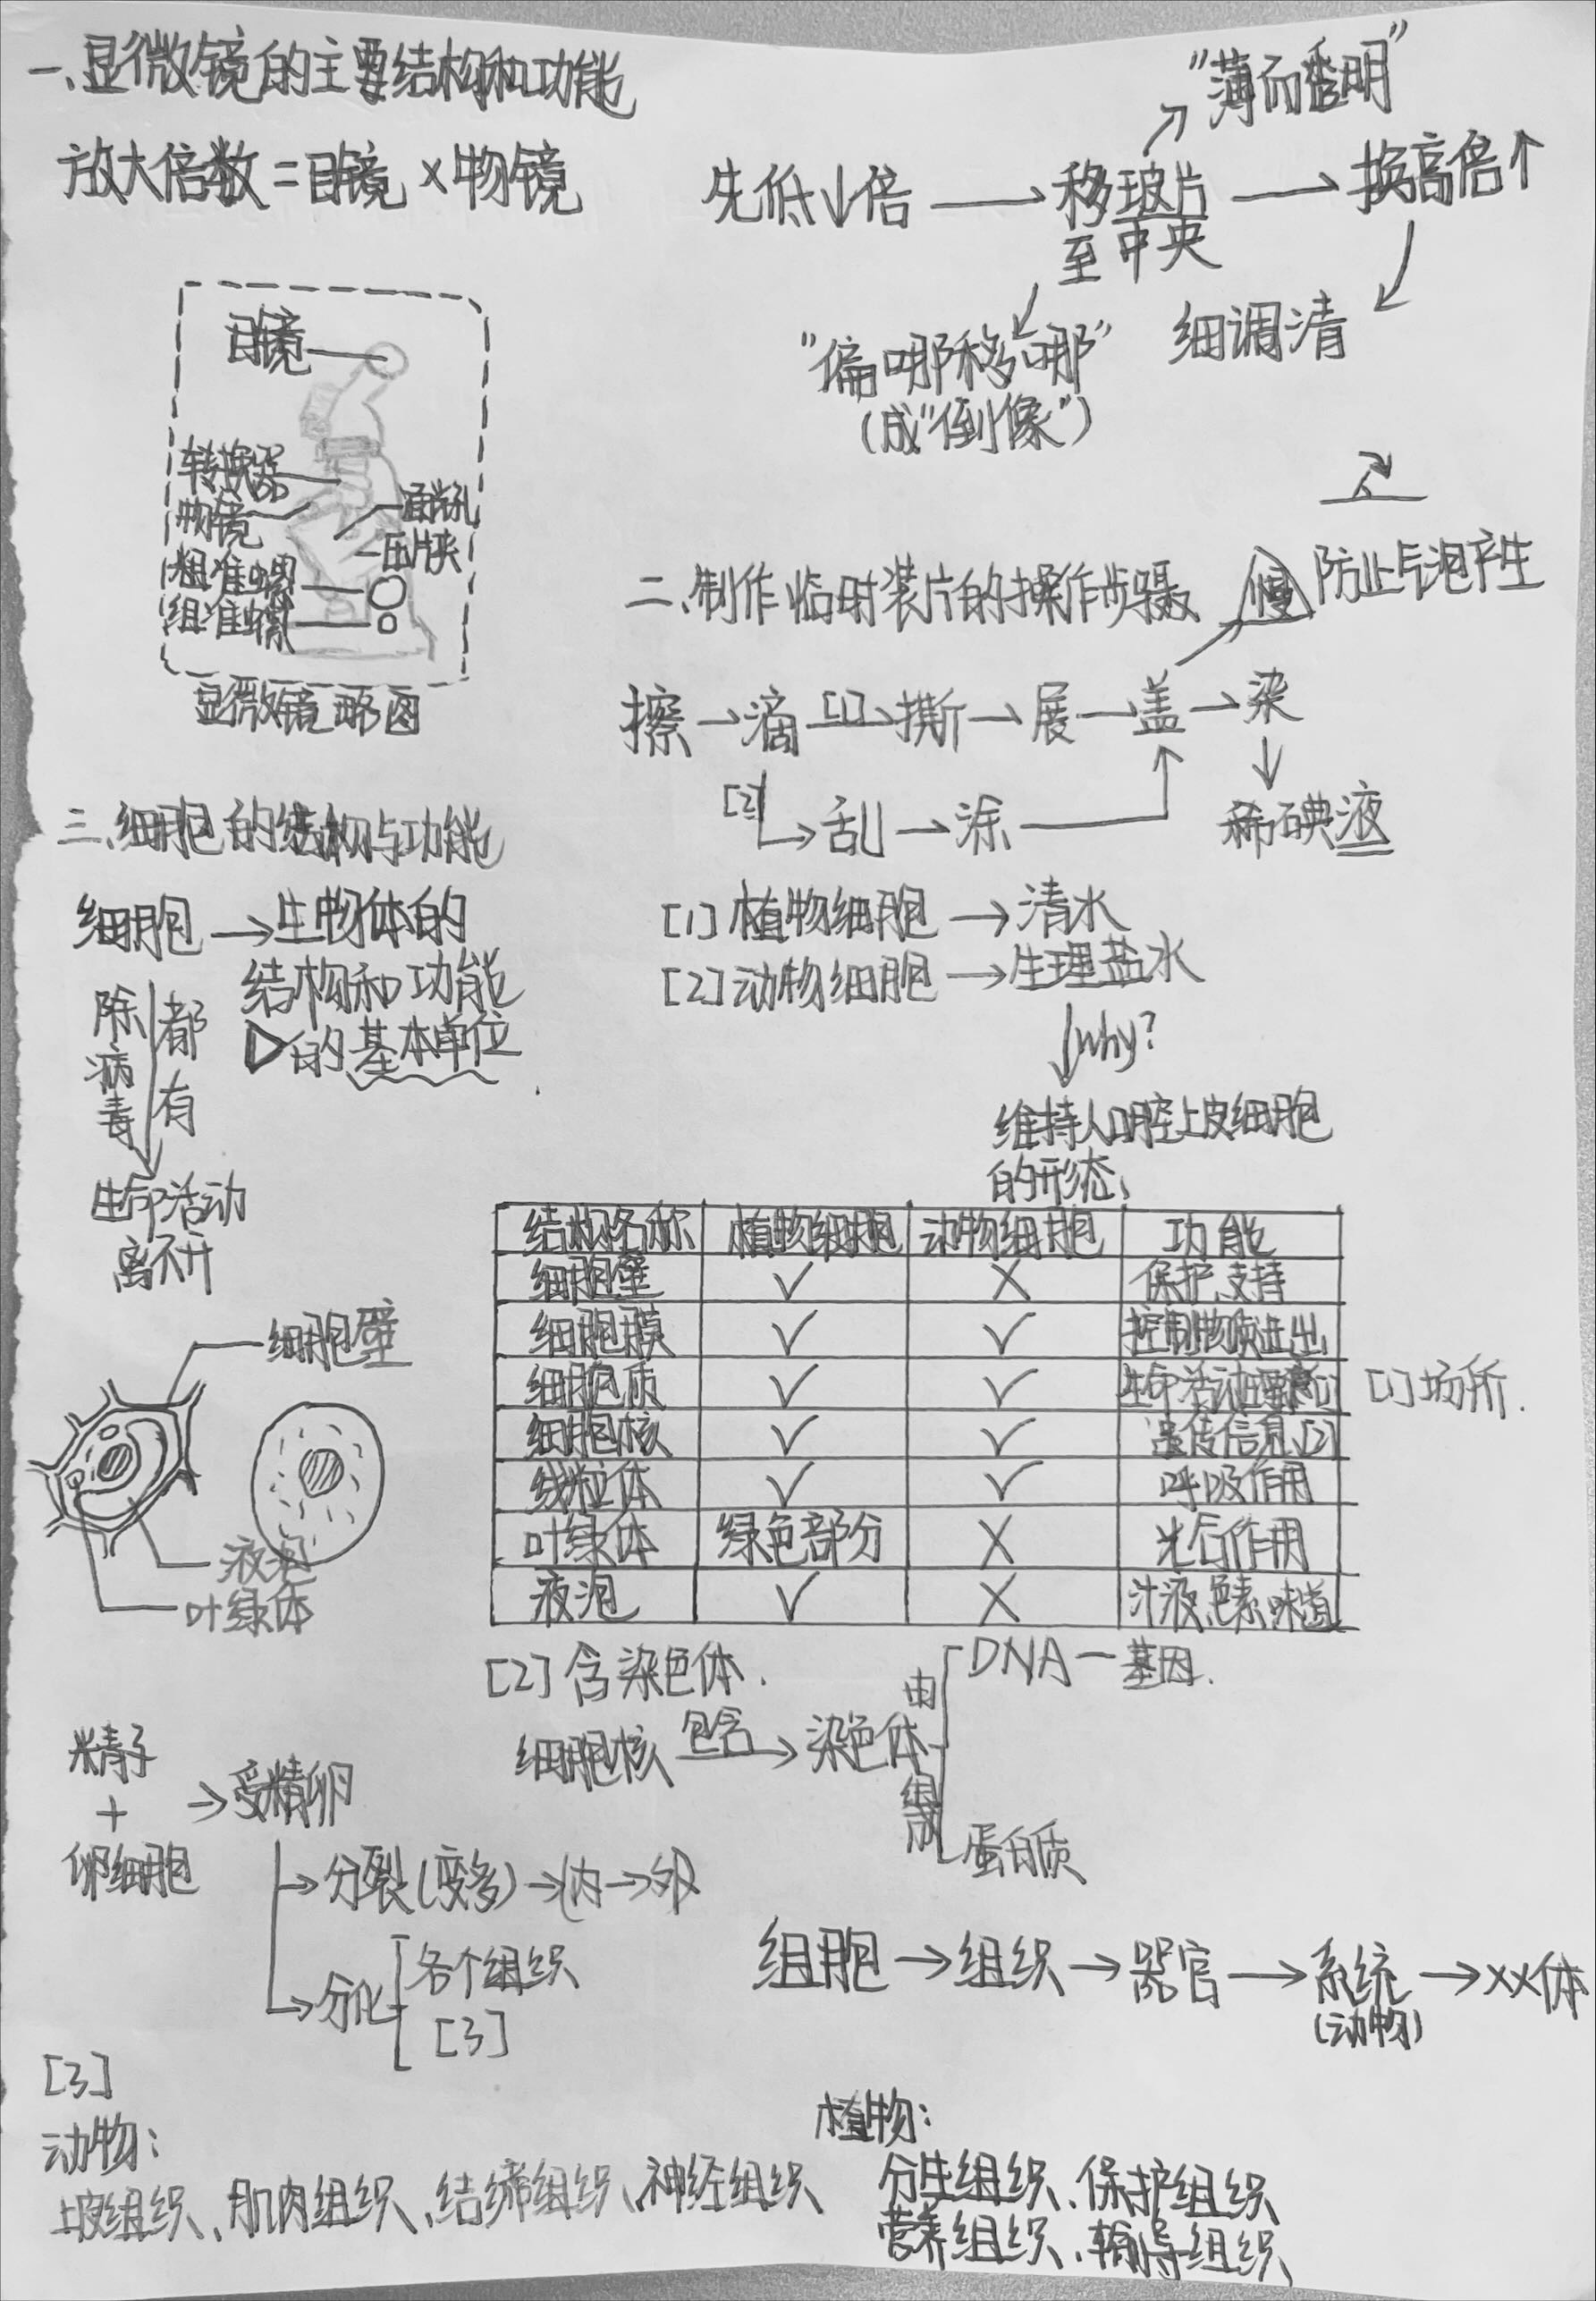 一、显微镜的主要结构和功能
放大倍数=目镜×物镜
"薄而透明"
先低↓倍→移玻片至中央→换高倍↑
细调清
"偏哪移哪"
(成"倒像")
目镜
转换器
物镜
通光孔
压片夹
粗准螺
细准螺
显微镜略图
二、制作临时装片的操作步骤
慢
防止气泡产生
擦→滴[1]→撕→展→盖→染
[2]→刮→涂
稀碘液
[1]植物细胞→清水
[2]动物细胞→生理盐水
why?
维持人口腔上皮细胞
的形态、
三、细胞的结构与功能
细胞→生物体的
结构和功能
的基本单位
除病毒
都有
生命活动
离不开
细胞壁
液泡
叶绿体
结构名称 植物细胞 动物细胞 功能
细胞壁 ✓ × 保护、支持
细胞膜 ✓ ✓ 控制物质进出
细胞质 ✓ ✓ 生命活动重要[1]
[1]场所.
细胞核 ✓ ✓ 遗传信息[2]
线粒体 ✓ ✓ 呼吸作用
叶绿体 绿色部分 × 光合作用
液泡 ✓ × 汁液、色素、味道
[2]含染色体.
细胞核 包含→染色体
由组成
DNA—基因.
蛋白质
精子
+
卵细胞
→受精卵
→分裂(变多)→内→外
→分化
各个组织
[3]
细胞→组织→器官→系统→××体
(动物)
[3]
动物:
上皮组织、肌肉组织、结缔组织、神经组织
植物:
分生组织、保护组织
营养组织、输导组织